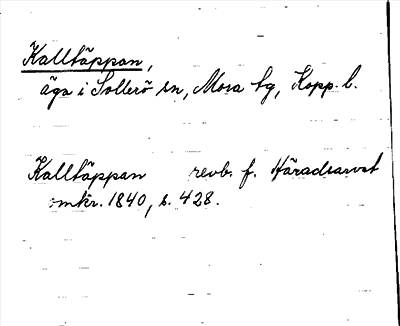 Kalltäppan,
äga i Sollerö sn, Mora tg, Kopp. l.
Kalltäppan revb. f. Häradsarvet
omkr. 1840, s. 428.